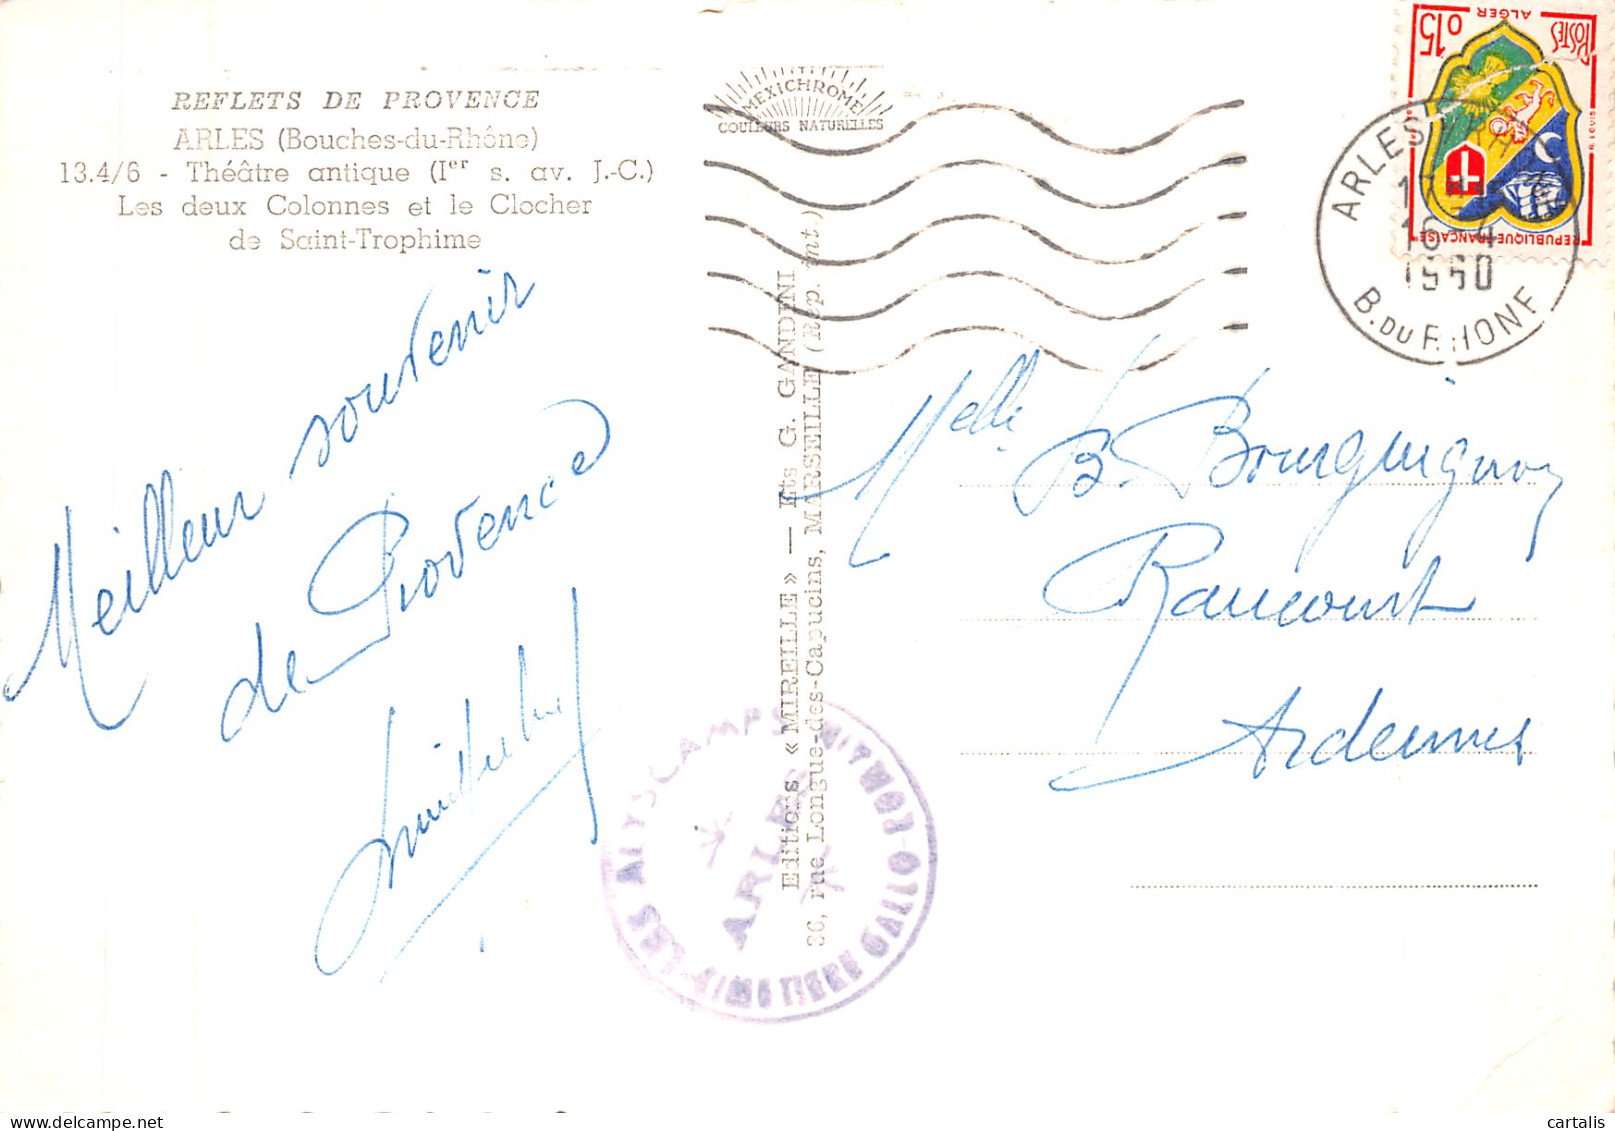 REFLETS DE PROVENCE
ARLES (Bouches-du-Rhône)
13.4/6 - Théâtre antique (Ier s. av. J.-C.)
Les deux Colonnes et le Clocher
de Saint-Trophime
Meilleur souvenir
de Provence
MEXICHROME
COULEURS NATURELLES
Editions « MIREILLE » — Ets G. GANDINI
36, rue Longue-des-Capucins, MARSEILLE (Rép. int.)
LES ALYSCAMPS
ARLES
POSTES
ALGER
0,15
REPUBLIQUE FRANÇAISE
ARLES
16-4
1960
B. DU RHONE
Melle B. Bourguignon
Raucourt
Ardennes
cartalis